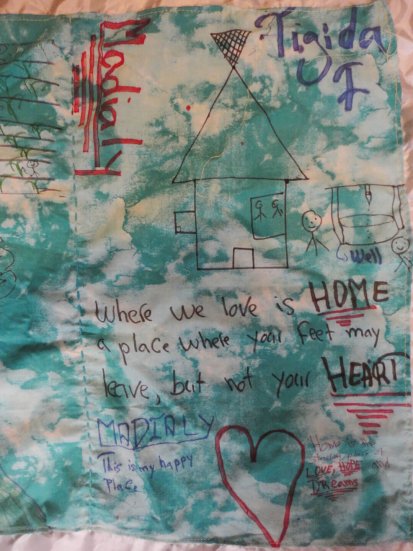 Tigida
I
Madialy
Well
Where we love is HOME
a place where your feet may
leave, but not your HEART
MADIALY
This is my happy
Place
LOVE, HOPE and
Dreams